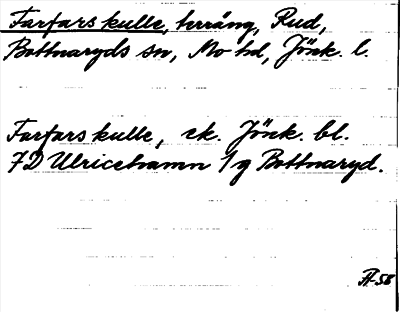 Farfars kulle, terräng, Rud,
Bottnaryds sn, Mo hd, Jönk. l.
Farfars kulle, ek. Jönk. bl.
7D Ulricehamn 1g Bottnaryd.
-58